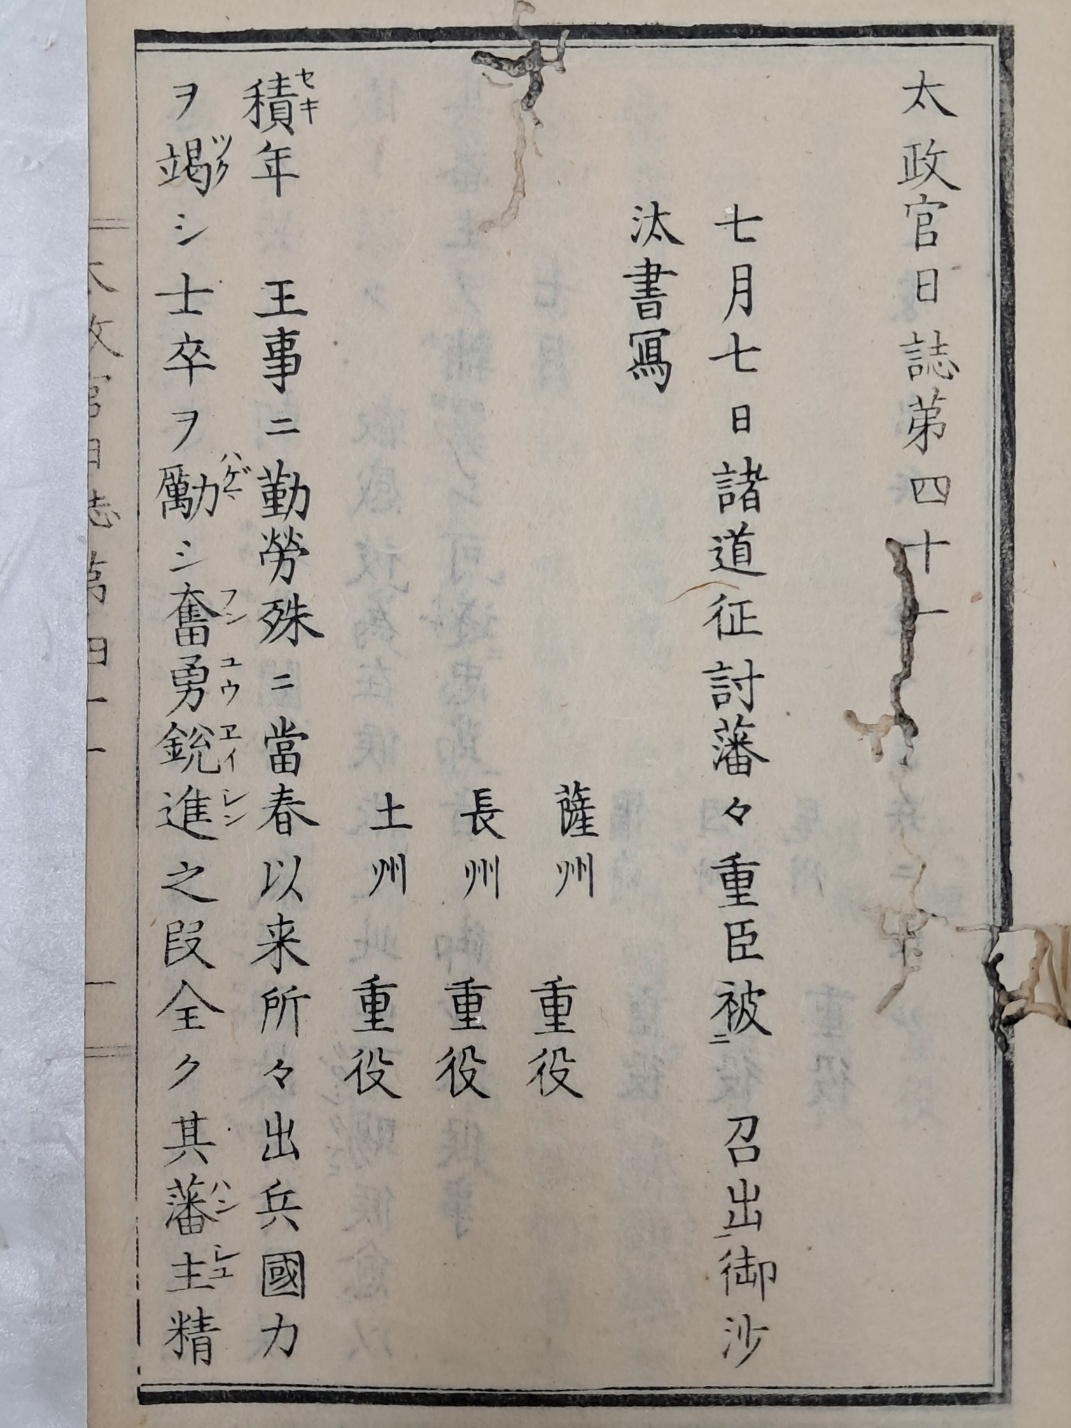 太政官日誌第四十一
七月七日諸道征討藩々重臣被ニ　召出御沙
汰書寫
薩州　重役
長州　重役
土州　重役
積年　王事ニ勤勞殊ニ當春以来所々出兵國力
ヲ竭シ士卒ヲ勵シ奮勇鋭進之段全ク其藩主精